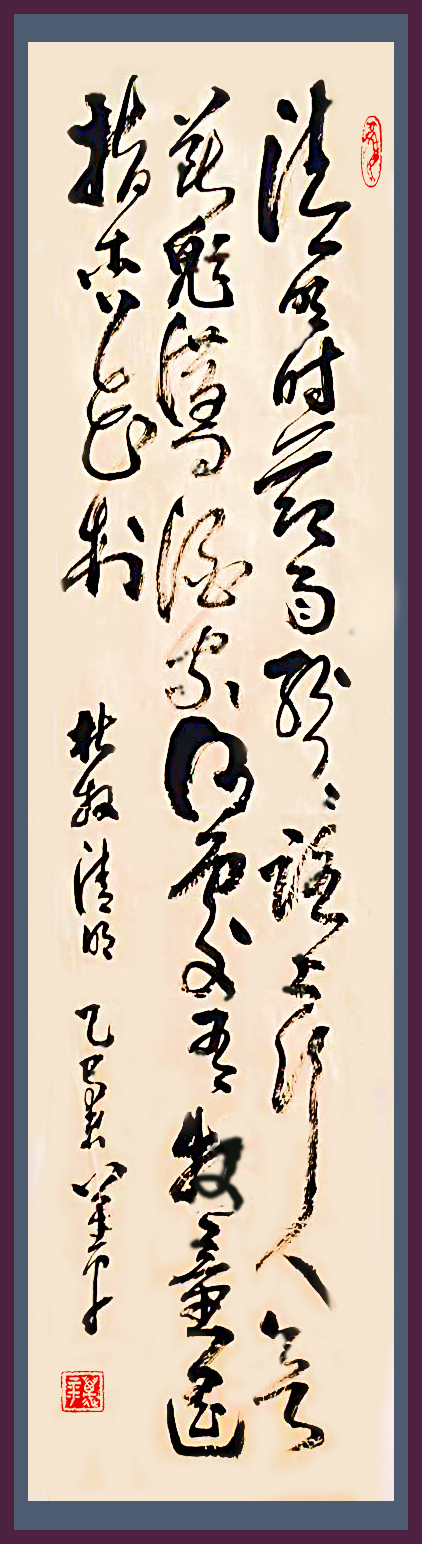 清明时节雨纷纷路上行人欲
断魂借问酒家何处有牧童遥
指杏花村
杜牧清明 乙巳